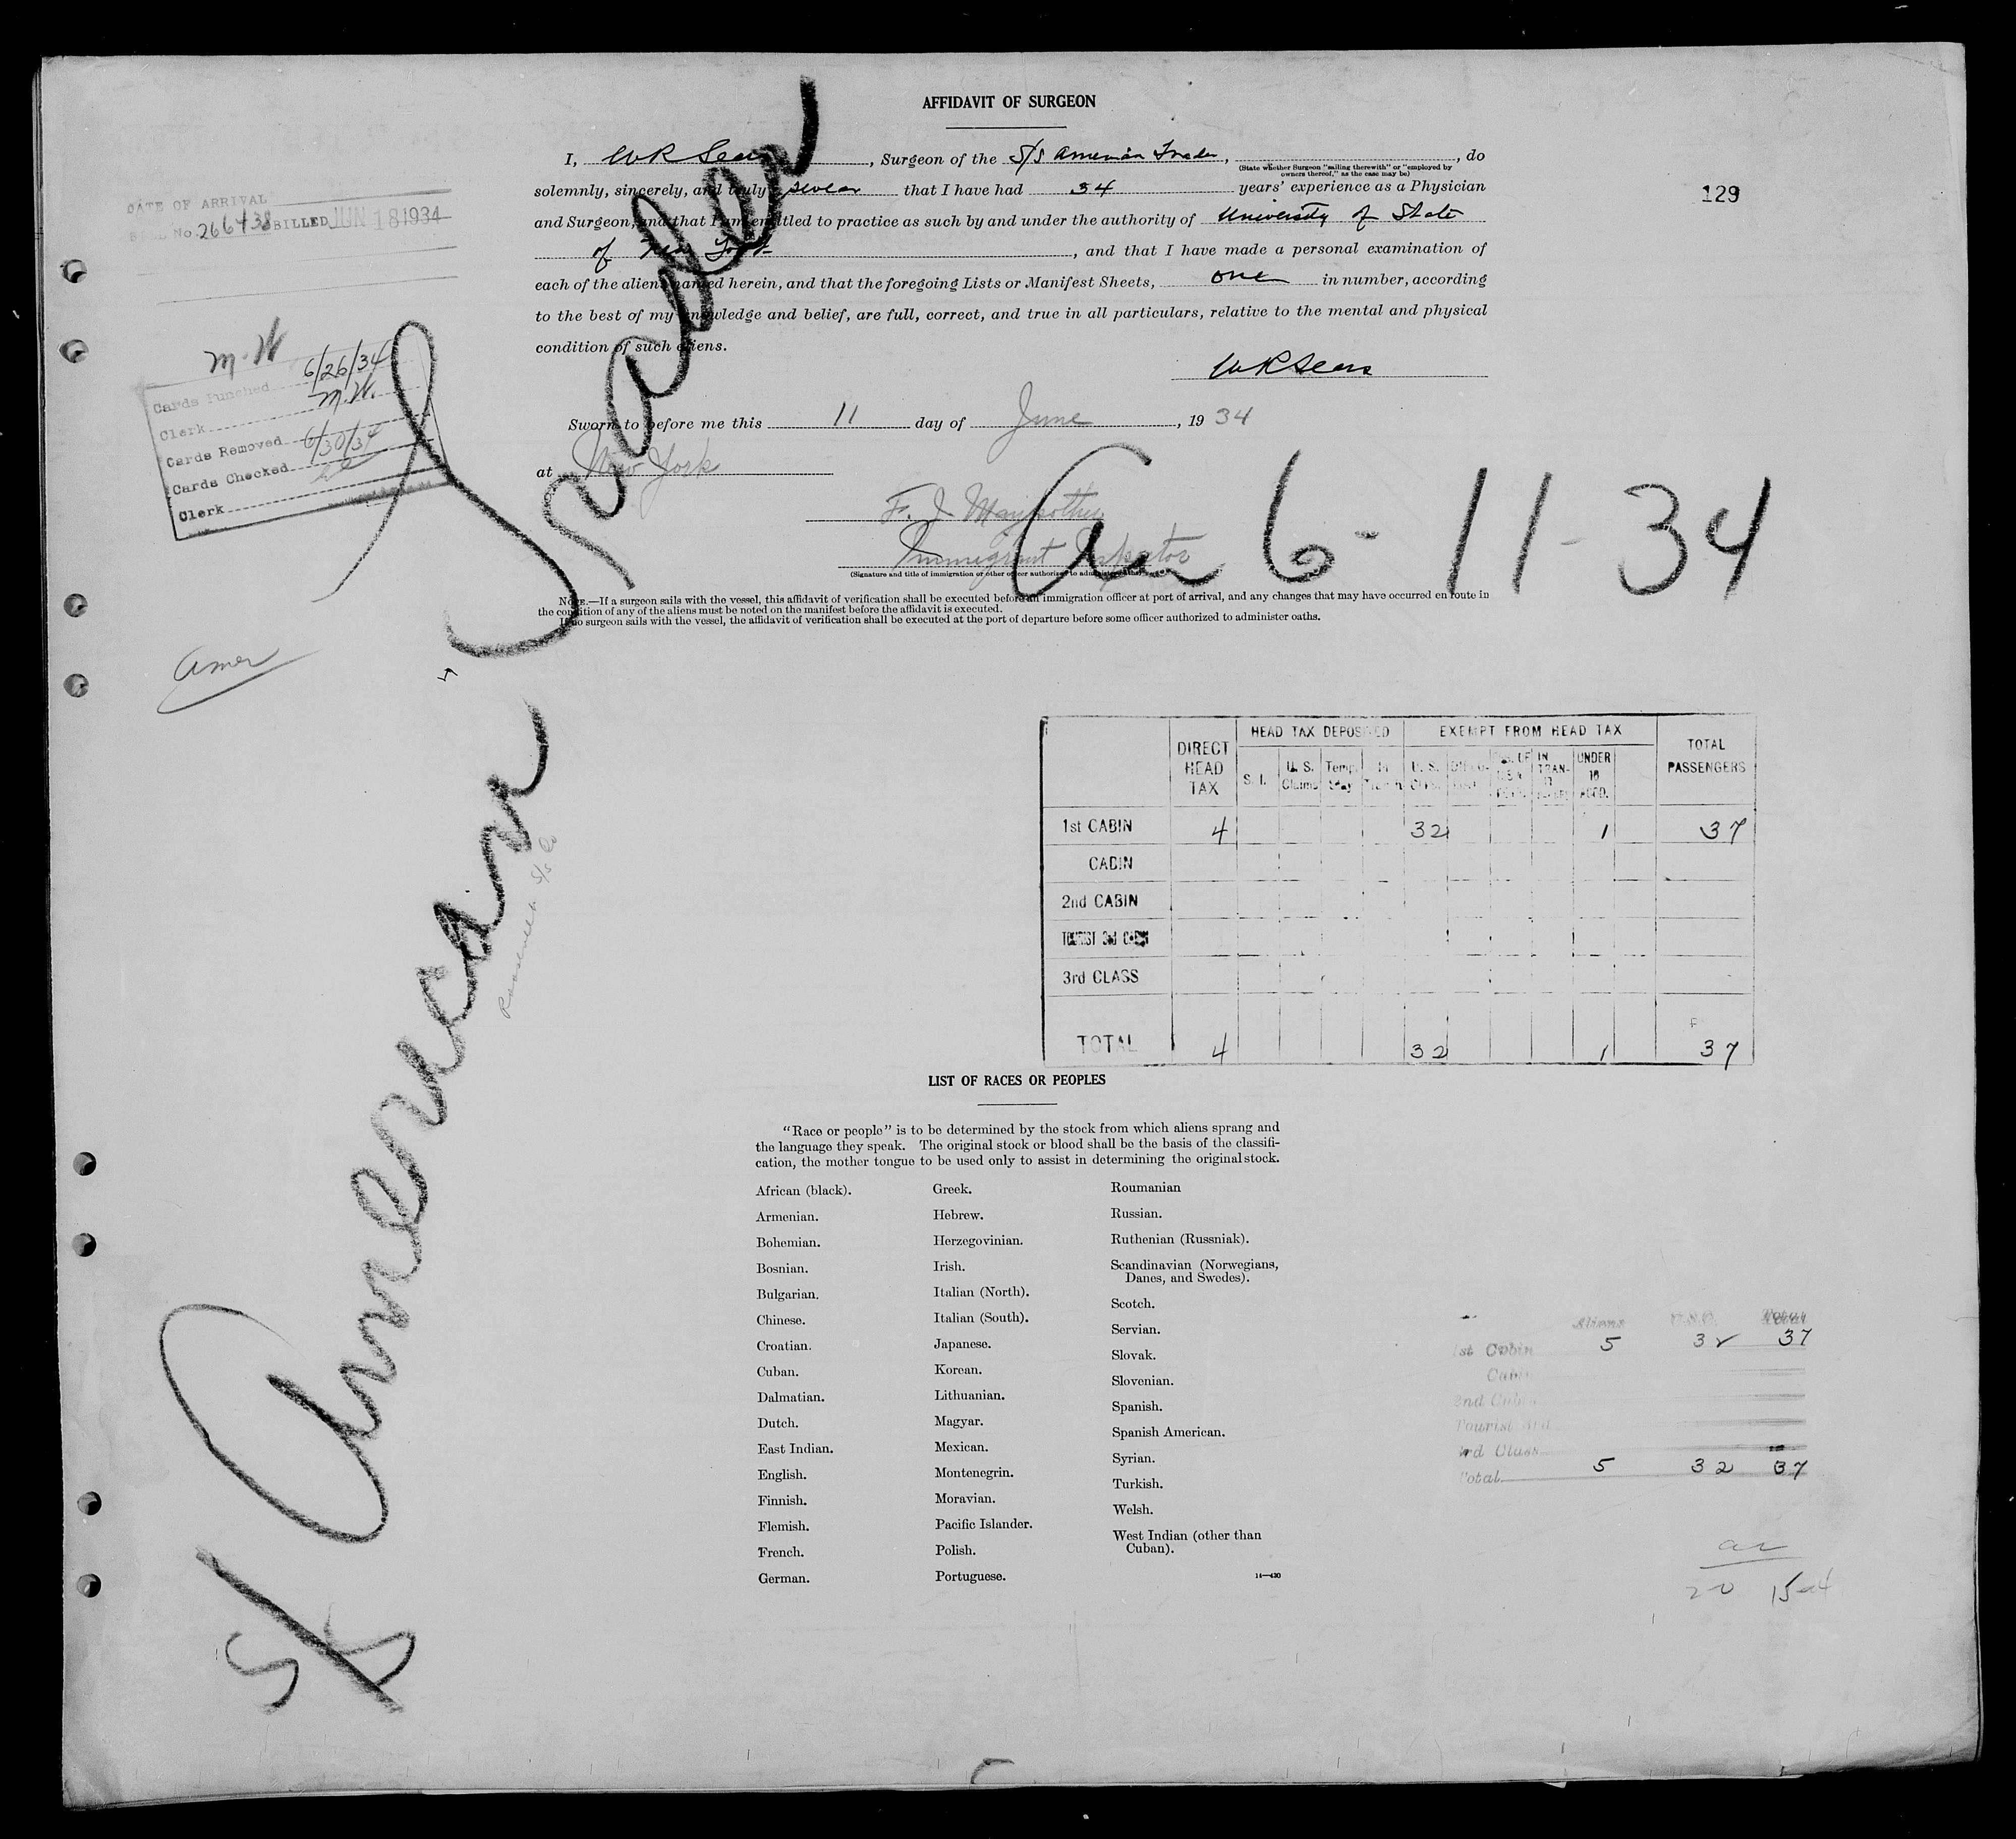 AFFIDAVIT OF SURGEON
I, W R Sears, Surgeon of the S/S American Trader, , do
(State whether Surgeon "sailing therewith" or "employed by
owners thereof," as the case may be)
solemnly, sincerely, and truly swear that I have had 34 years' experience as a Physician
129
and Surgeon, and that I am entitled to practice as such by and under the authority of University of State
of New York, and that I have made a personal examination of
each of the aliens named herein, and that the foregoing Lists or Manifest Sheets, one in number, according
to the best of my knowledge and belief, are full, correct, and true in all particulars, relative to the mental and physical
condition of such aliens.
W R Sears
Sworn to before me this 11 day of June, 1934
at New York
F. J.
Immigrant Inspector
(Signature and title of immigration or other officer authorized to administer oaths)
NOTE.—If a surgeon sails with the vessel, this affidavit of verification shall be executed before an immigration officer at port of arrival, and any changes that may have occurred en route in
the condition of any of the aliens must be noted on the manifest before the affidavit is executed.
If no surgeon sails with the vessel, the affidavit of verification shall be executed at the port of departure before some officer authorized to administer oaths.
DATE OF ARRIVAL
No. 266438 BILLED JUN 18 1934
M.W
Cards Punched 6/26/34
Clerk M.W.
Cards Removed 6/30/34
Cards Checked
Clerk
Amer
S/S American Trader
6-11-34
DIRECT HEAD TAX
HEAD TAX DEPOSITED
EXEMPT FROM HEAD TAX
TOTAL PASSENGERS
S. I. U. S. Claims Temp. Stay U. S. IN TRAN- UNDER 16 ACCD.
1st CABIN 4 32 1 37
CABIN
2nd CABIN
TOURIST 3rd CABIN
3rd CLASS
TOTAL 4 32 1 37
LIST OF RACES OR PEOPLES
"Race or people" is to be determined by the stock from which aliens sprang and
the language they speak. The original stock or blood shall be the basis of the classifi-
cation, the mother tongue to be used only to assist in determining the original stock.
African (black).
Armenian.
Bohemian.
Bosnian.
Bulgarian.
Chinese.
Croatian.
Cuban.
Dalmatian.
Dutch.
East Indian.
English.
Finnish.
Flemish.
French.
German.
Greek.
Hebrew.
Herzegovinian.
Irish.
Italian (North).
Italian (South).
Japanese.
Korean.
Lithuanian.
Magyar.
Mexican.
Montenegrin.
Moravian.
Pacific Islander.
Polish.
Portuguese.
Roumanian
Russian.
Ruthenian (Russniak).
Scandinavian (Norwegians,
Danes, and Swedes).
Scotch.
Servian.
Slovak.
Slovenian.
Spanish.
Spanish American.
Syrian.
Turkish.
Welsh.
West Indian (other than
Cuban).
14—430
Aliens U.S.C. Total
1st Cabin 5 32 37
Cabin
2nd Cabin
Tourist 3rd
3rd Class
Total 5 32 37
20 15-4